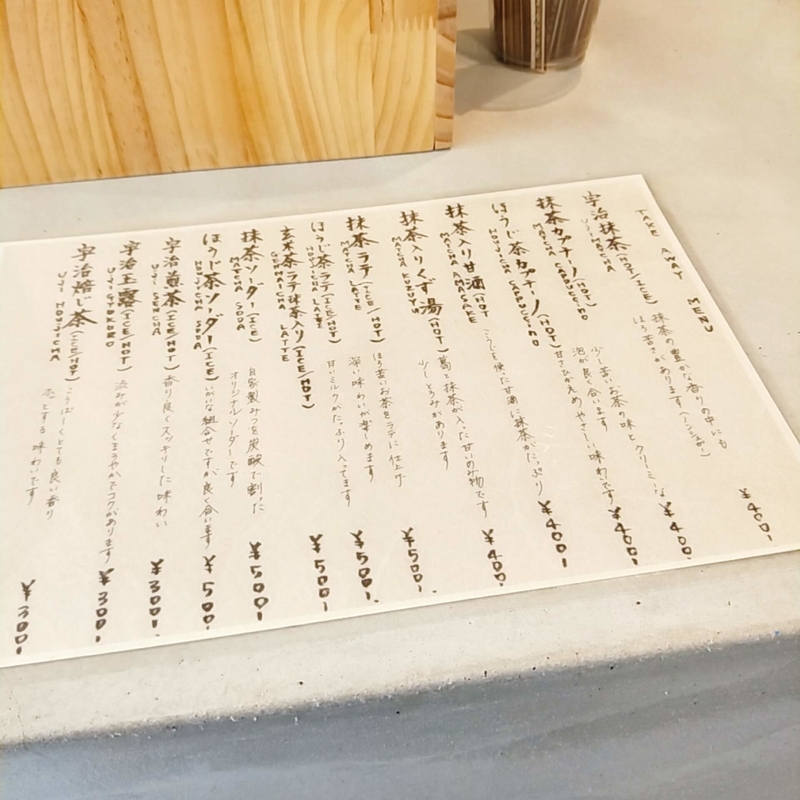 TAKE AWAY MENU
宇治抹茶(HOT/ICE)
UJI MATCHA
抹茶の豊かな香りの中にも
ほろ苦さがあります(ノンシュガー)
¥400.
抹茶カプチーノ(HOT)
MATCHA CAPPUCCINO
少し苦いお茶の味とクリーミーな
泡が良く合います
¥400.
ほうじ茶カプチーノ(HOT)
HOUJICHA CAPPUCCINO
甘さひかえめ やさしい味わいです
¥400.
抹茶入り甘酒(HOT)
MATCHA AMASAKE
こうじを使った甘酒に抹茶がたっぷり
¥400.
抹茶入りくず湯(HOT)
MATCHA KUZUYU
葛と抹茶が入った甘いのみ物です
少しとろみがあります
¥400.
抹茶ラテ(ICE/HOT)
MATCHA LATTE
ほろ苦いお茶をラテに仕上げ
深い味わいが楽しめます
¥500.
ほうじ茶ラテ(ICE/HOT)
HOUJICHA LATTE
甘いミルクがたっぷり入ってます
¥500.
玄米茶ラテ抹茶入り(ICE/HOT)
GENMAICHA LATTE
¥500.
抹茶ソーダー(ICE)
MATCHA SODA
自家製みつを炭酸で割った
オリジナルソーダーです
¥500.
ほうじ茶ソーダー(ICE)
HOUJICHA SODA
いがいな組合せですが良く合います
¥500.
宇治煎茶(ICE/HOT)
UJI SENCHA
香り良くスッキリした味わい
¥300.
宇治玉露(ICE/HOT)
UJI GYOKURO
渋みが少なくまろやかでコクがあります
¥300.
宇治焙じ茶(ICE/HOT)
UJI HOUJICHA
こうばしくとても良い香り
とする味わいです
¥300.